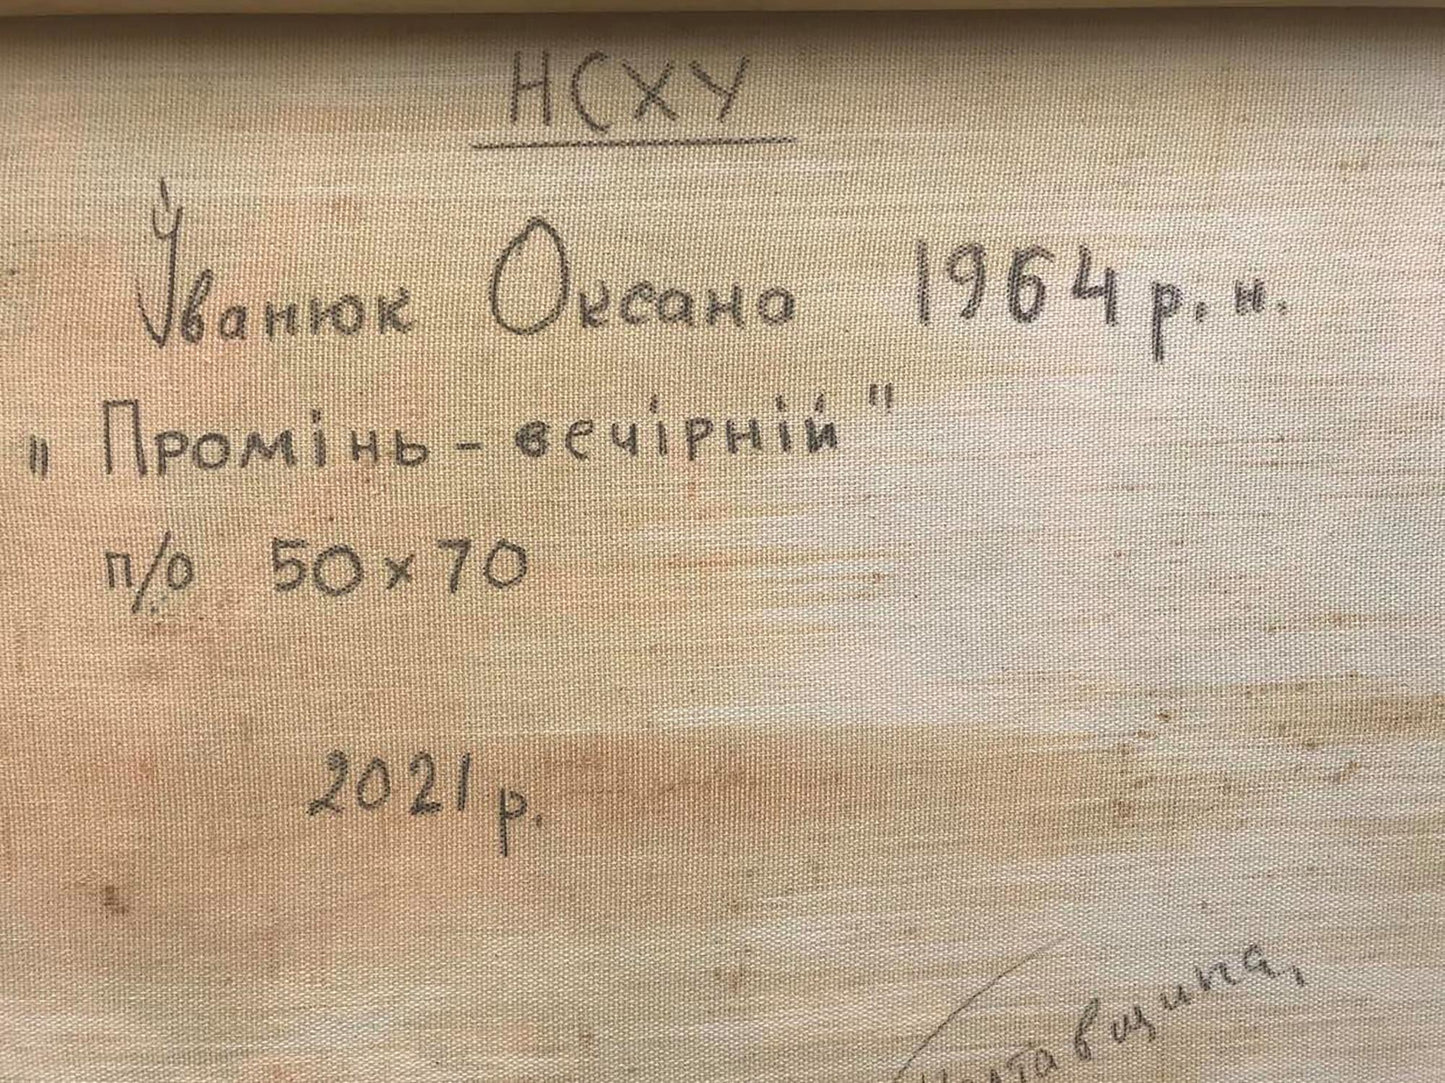 НСХУ
Іванюк Оксана 1964 р. н.
"Промінь - вечірній"
п/о 50 х 70
2021 р.
Полтавщина,